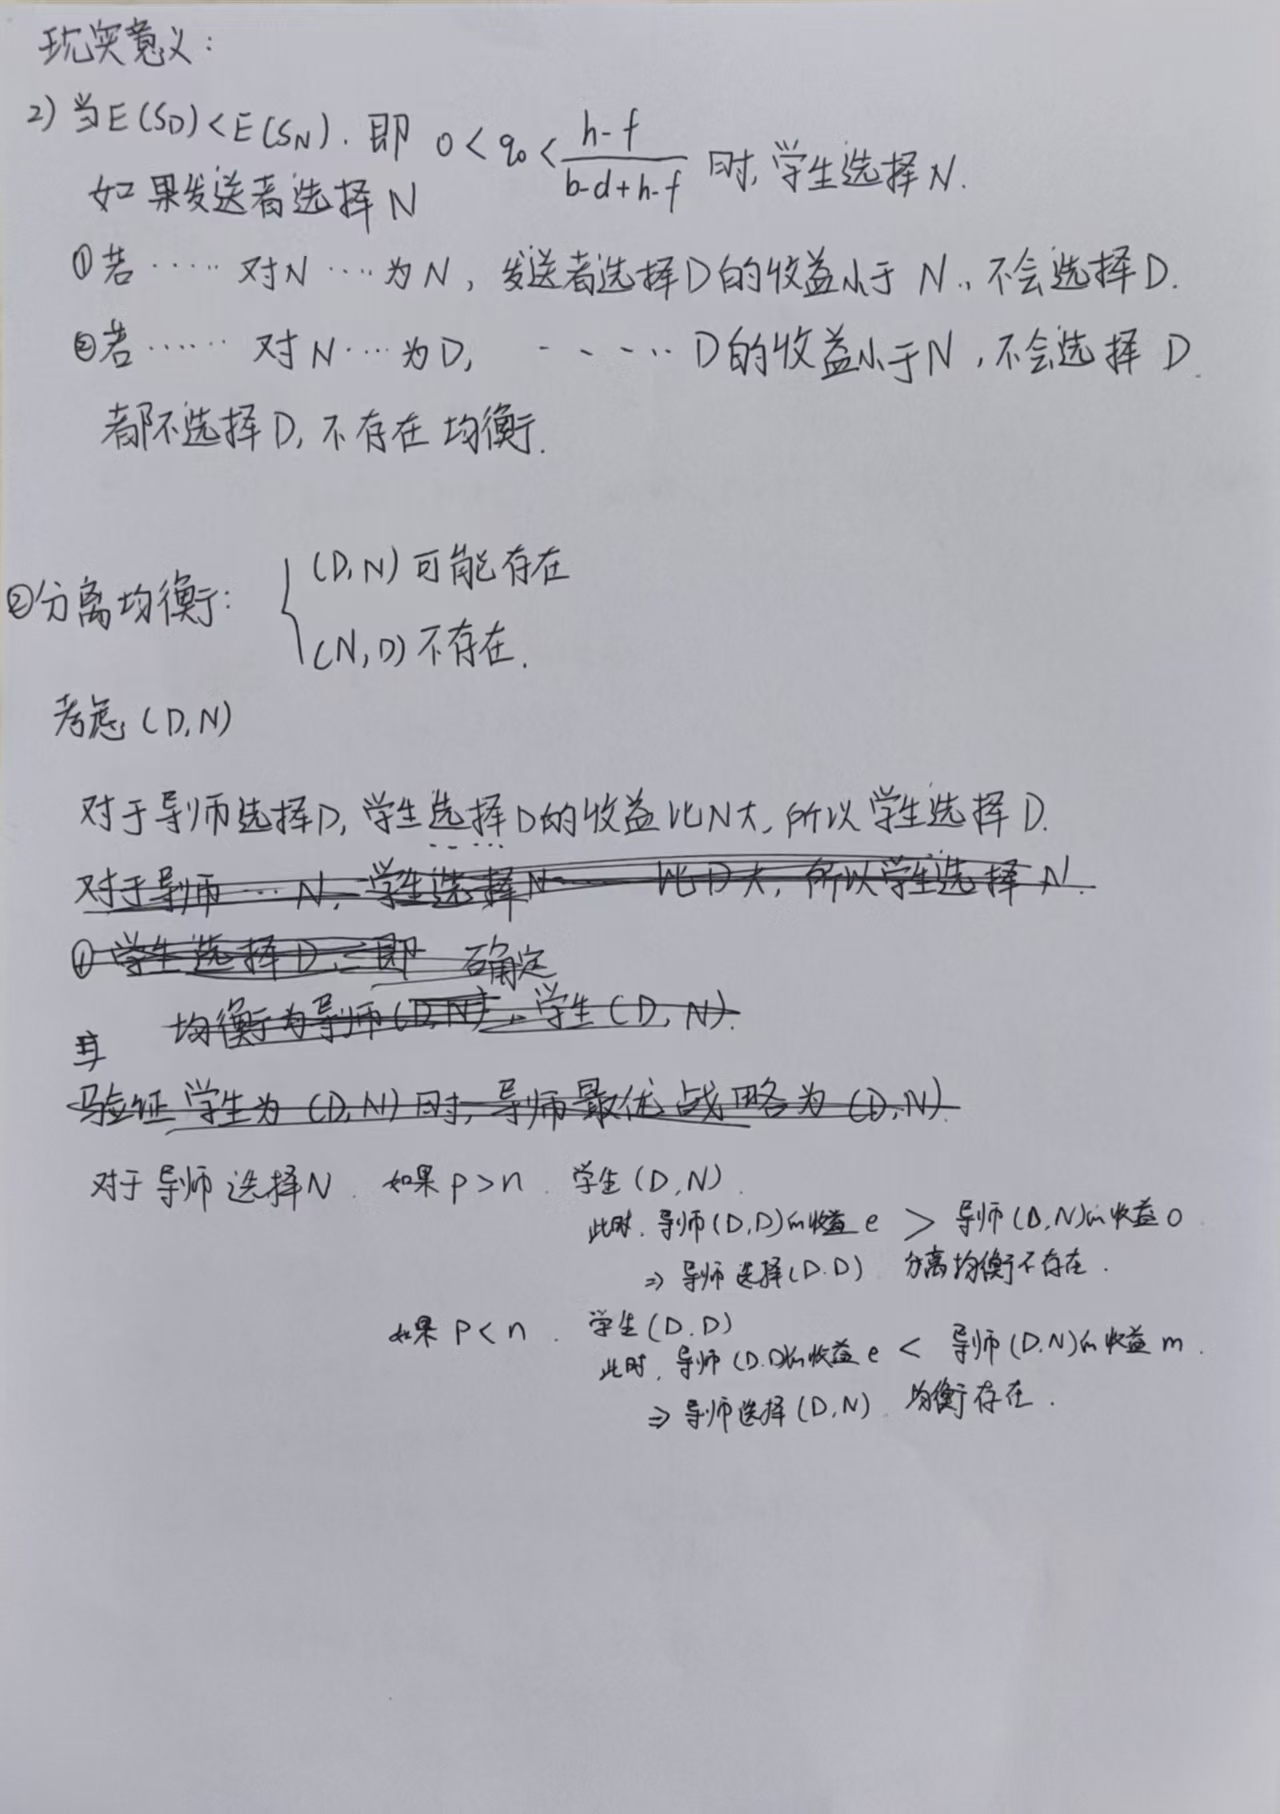 现实意义:
2) 当E(S_D)<E(S_N). 即 0<q_0<\frac{h-f}{b-d+h-f} 时, 学生选择N.
如果发送者选择N
①若…… 对N …为N, 发送者选择D的收益小于N., 不会选择D.
②若…… 对N…为D, ------ D的收益小于N, 不会选择D.
都不选择D, 不存在均衡.
②分离均衡: { (D,N)可能存在
(N,D)不存在.
考虑(D,N)
对于导师选择D, 学生选择D的收益比N大, 所以学生选择D.
对于导师…N, 学生选择N 比D大, 所以学生选择N.
① 学生选择D, 即 确定
均衡为导师(D,N), 学生(D,N).
验证学生为(D,N)时, 导师最优战略为(D,N)
对于导师选择N. 如果p>n. 学生(D,N)
此时. 导师(D,D)的收益e > 导师(D,N)的收益0
⇒ 导师选择(D.D) 分离均衡不存在.
如果P<n. 学生(D.D)
此时. 导师(D.D)的收益e < 导师(D.N)的收益m.
⇒ 导师选择(D,N). 均衡存在.